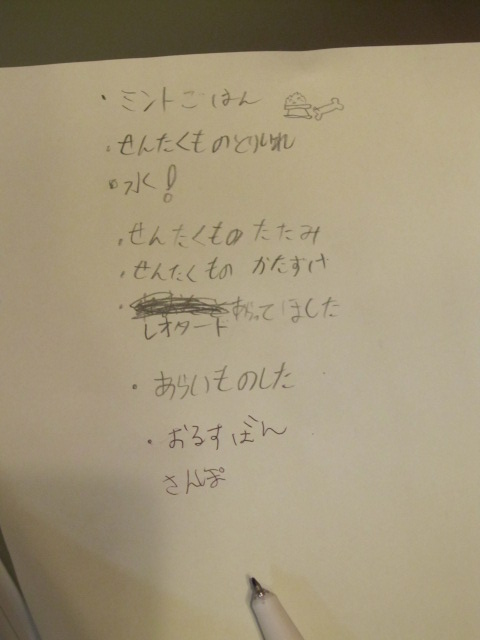 ・ミントごはん
・せんたくものとりいれ
・水く!
・せんたくものたたみ
・せんたくもの かたずけ
・あらってほした
レオタード
・あらいものした
・おるすばん
さんぽ